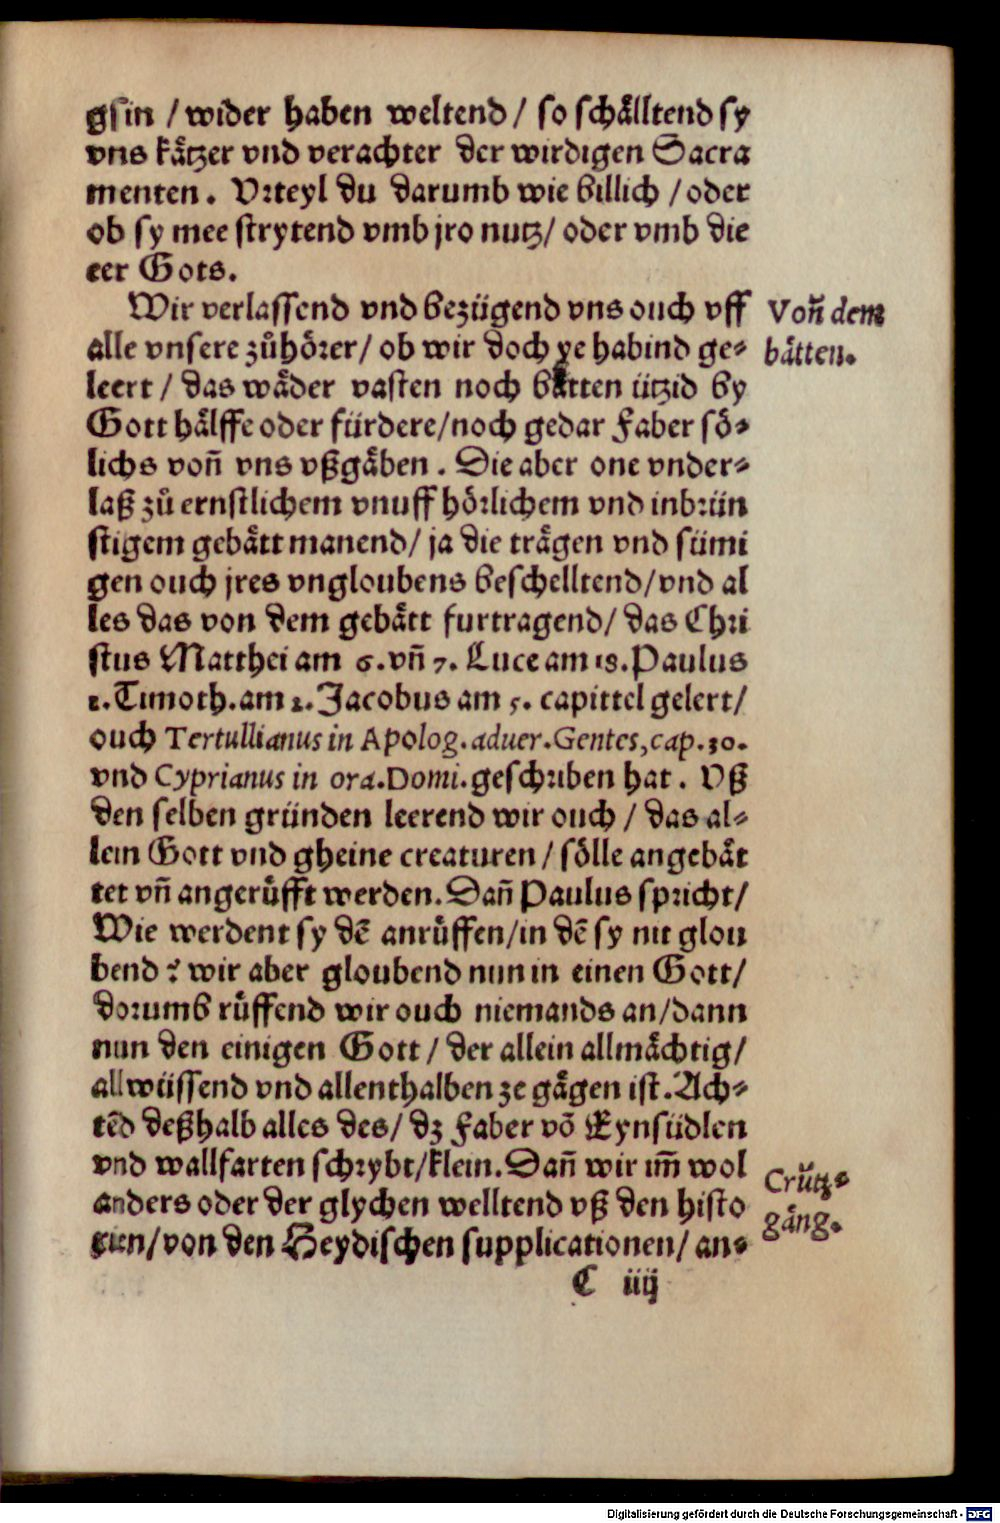 gsin / wider haben weltend / so schaͤlltend sy
vns kaͤtzer vnd verachter der wirdigen Sacra
menten. Vrteyl du darumb wie billich / oder
ob sy mee strytend vmb jro nutz / oder vmb die
eer Gots.
Wir verlassend vnd bezügend vns ouch vff
Von̄ dem
alle vnsere zůhoͤrer / ob wir doch ye habind ge⸗
baͤtten.
leert / das waͤder vasten noch baͤtten ützid by
Gott haͤlffe oder fürdere / noch gedar Faber soͤ⸗
lichs von̄ vns vßgaͤben. Die aber one vnder⸗
laß zů ernstlichem vnuff hoͤrlichem vnd inbrün
stigem gebaͤtt manend / ja die traͤgen vnd sümi
gen ouch jres vngloubens beschelltend / vnd al
les das von dem gebaͤtt furtragend / das Chri
stus Matthei am 6. vn̄ 7. Luce am 18. Paulus
1. Timoth. am 2. Jacobus am 5. capittel gelert /
ouch Tertullianus in Apolog. aduer. Gentes, cap. 30.
vnd Cyprianus in ora. Domi. geschriben hat. Vß
den selben gründen leerend wir ouch / das al⸗
lein Gott vnd gheine creaturen / soͤlle angebaͤt
tet vn̄ angeruͤfft werden. Dan̄ Paulus spricht /
Wie werdent sy dē anruͤffen / in dē sy nit glou
bend? wir aber gloubend nun in einen Gott /
dorumb ruͤffend wir ouch niemands an / dann
nun den einigen Gott / der allein allmaͤchtig /
allwüssend vnd allenthalben ze gaͤgen ist. Ach⸗
tēd deßhalb alles des / dz Faber vō Eynsüdlen
vnd wallfarten schrybt / klein. Dan̄ wir im̄ wol
Crütz⸗
anders oder der glychen welltend vß den histo
gaͤng.
rien / von den Heydischen supplicationen / an⸗
C iiij
Digitalisierung gefördert durch die Deutsche Forschungsgemeinschaft - DFG